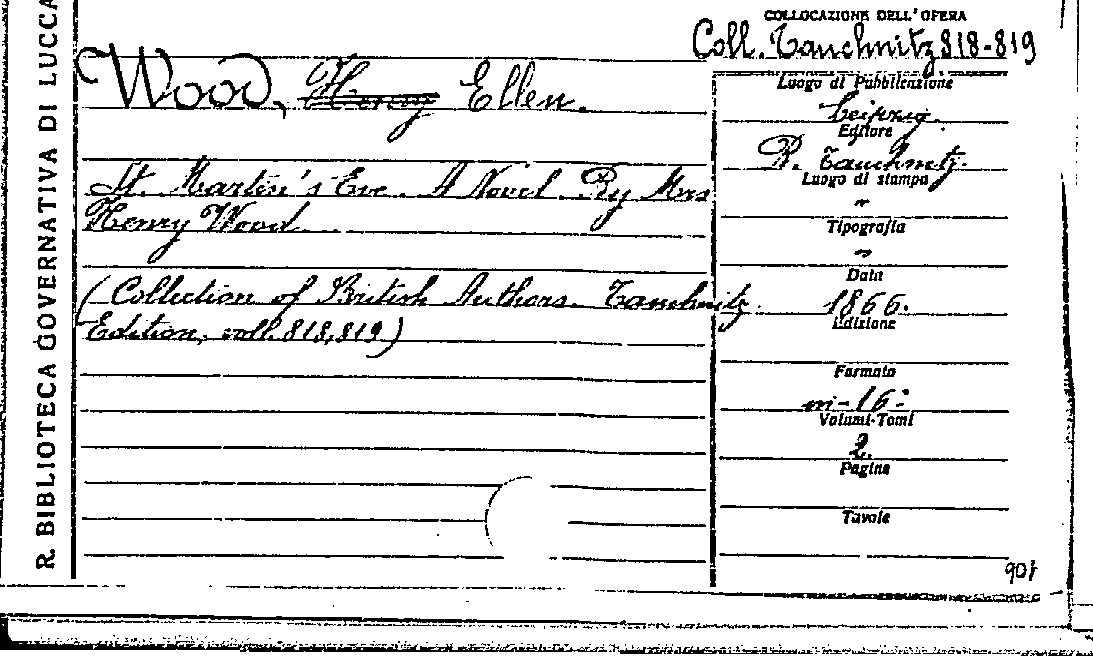 R. BIBLIOTECA GOVERNATIVA DI LUCCA
COLLOCAZIONE DELL'OPERA
Coll. Tauchnitz 818-819
Wood, Henry Ellen.
St. Martin's Eve. A Novel. By Mrs
Henry Wood.
(Collection of British Authors. Tauchnitz
Edition, voll. 818, 819)
Luogo di Pubblicazione
Leipzig.
Editore
B. Tauchnitz.
Luogo di stampa
"
Tipografia
"
Data
1866.
Edizione
Formato
in-16:
Volumi-Tomi
2.
Pagine
Tavole
106